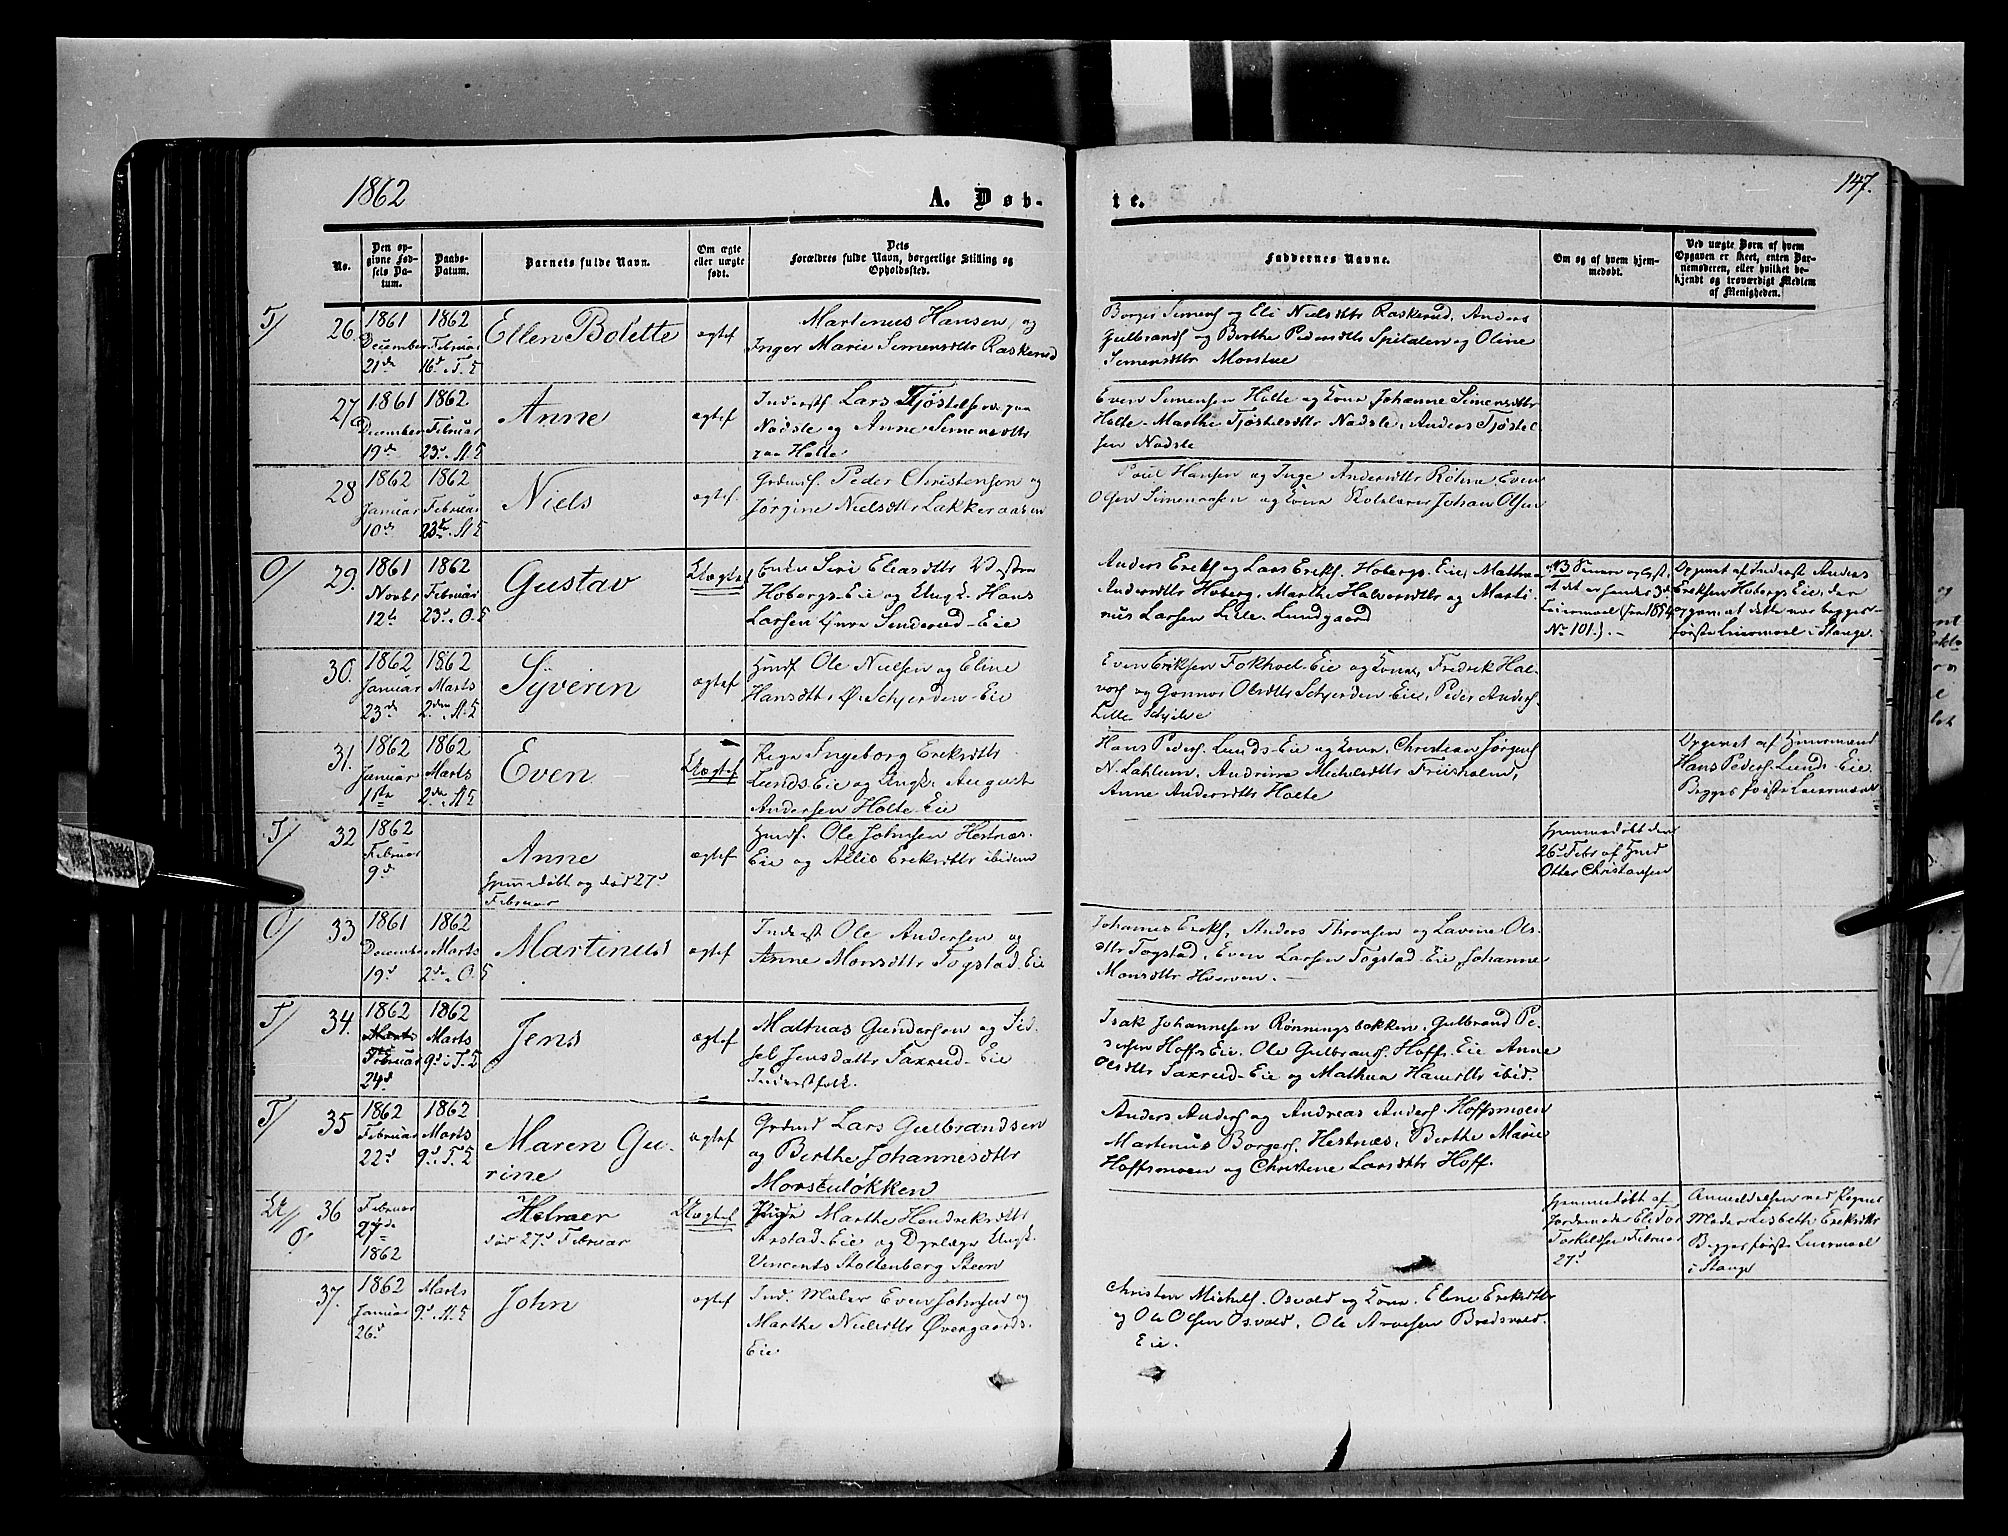 1862
A. Døb-
te.
147.
No.
Den op-
givne Fød-
sels Da-
tum.
Daabs-
Datum.
Barnets fulde Navn.
Om ægte
eller uægte
født.
Dets
Forældres fulde Navn, borgerlige Stilling og
Opholdssted.
Faddernes Navne.
Om og af hvem hjem-
medøbt.
Ved uægte Børn af hvem
Opgaven er skeet, enten Bar-
nemoderen, eller hvilket be-
kjendt og troværdigt Medlem
af Menigheden.
T/ 26.
1861
December
21de
1862
Februar
16d. T. K
Ellen Bolette
ægtef
Martinus Hansen, og
Inger Marie Simensdttr Raskerud
Borger Simens og Eli Nielsdttr Raskerud, Anders
Gulbrands og Berthe Pedersdttr Spitalen og Oline
Simensdttr Morstue
27.
1861
December
19de
1862
Februar
23d.
Anne
ægtef
Inderst Lars Tjøstelsen paa
Nødsle og Anne Simensdttr
paa Holte
Even Simensen Holte og Kone Johanne Simensdttr
Holte. Marthe Tjøstelsdttr Nødsle, Anders Tjøstel-
sen Nødsle
28
1862
Januar
10de
1862
Februar
23de
Niels
ægtef.
Grdmd. Peder Christensen og
Jørgine Nielsdttr Lakkeraasen
Poul Hansen og Inge Andersdttr Rohne, Even
Olsen Simenaasen og Kone Johan Olsen
O/ 29.
1861
Novbr
12te
1862
Februar
23d. O. K
Gustav
Uægtef
Enke Siri Eliasdttr Vestre
Hobergs-Eie og Ungk. Hans
Larsen Sønderud-Eie
Anders Eriks og Lars Eriks. Hobergs-Eie, Mathea
Andersdttr Hoberg, Marthe Halvorsdttr og Marti-
nus Larsen Lille-Lundgaard
NB Senere oplyst
at det er hendes 3de
Leiermaal (see 1854
No 101). -
Opgivet af Inderst Anders
Eriksen Hobergs Eie, der
opgav, at dette var begges
første Leiermaal i Stange.
30.
1862
Januar
23de
1862
Marts
2den
Syverin
ægtef
Husmd Ole Nielsen og Eline
Hansdttr Ø. Schjerden-Eie
Even Eriksen Fokhol-Eie og Kone, Fredrik Hal-
vors og Gonnor Olsdttr Schjerden Eie, Peder Anders.
Lille
31.
1862
Januar
1ste
1862
Marts
2den
Even
Uægtef
Pige Ingeborg Eriksdttr
Lunds-Eie og Ungk. August
Andersen Holte-Eie
Hans Peders. Lunds-Eie og Kone, Christian Jørgens
N. Lahlum, Andrine Michelsdttr Friisholm,
Anne Andersdttr Holte
Opgivet af Husmand
Hans Peders. Lunds-Eie
Begges første Leiermaal
T/ 32
1862
Februar
9de
Anne
hjemmedøbt og død 27d
Februar
ægtef
Husmd. Ole Johnsen Hestnæs-
Eie og Allis Eriksdttr ibidem
hjemmedøbt den
26d Febr af Husmd
Otter Christiansen
O/ 33
1861
December
19d
1862
Marts
2den. O. K
Martinus
ægtef
Inderst Ole Andersen og
Anne Monsdttr Togstad-Eie
Johannes Eriks. Anders Thronsen og Lavine Ols-
dttr Togstad, Even Larsen Togstad-Eie Johanne
Monsdttr Hverven. -
T/ 34.
1862
Februar
24d.
1862
Marts
9d. i T. K
Jens
ægtef
Mathias Gundersen og Sid-
sel Jensdattr Saxrud-Eie
Inderstfolk.
Isak Johannesen Rønningsbakken, Gulbrand Pe-
dersen Hoffs Eie. Ole Gulbrands. Hoffs-Eie Anne
Olsdttr Saxrud-Eie og Mathea Hansdttr ibid.
T/ 35
1862
Februar
22d
1862
Marts
9d. T. K
Maren Gu-
rine
ægtef
Grdmd Lars Gulbrandsen
og Berthe Johannesdttr
Morstuløkken
Anders Anders og Andreas Anders. Hoffsmoen
Martinus Borgers. Hestnæs, Berthe Marie
Hoffsmoen og Christine Larsdttr Hoff.
36
Februar
27de
1862
Helmer
død 27d Februar
Uægtef
Pige Marthe Hendriksdttr
Arstad-Eie og Dyrlæge Ungk.
Vincents Stoltenberg Steen
hjemmedøbt af
Jordemoder Eli
Torkildsen Februar
27d.
Anmeldelsen ved Pigens
Moder Lisbeth Eriksdttr
Begges første Leiermaal
i Stange
37.
1862
Januar
26d
Marts
9d.
John
ægtef
Ind. Maler Even Johnsen og
Marthe Nielsdttr Øvergaards-
Eie
Christen Michels. Osvold og Kone, Eline Eriksdttr
og Ole Olsen Osvold, Ole Arnesen Bredsvold.
Eie.